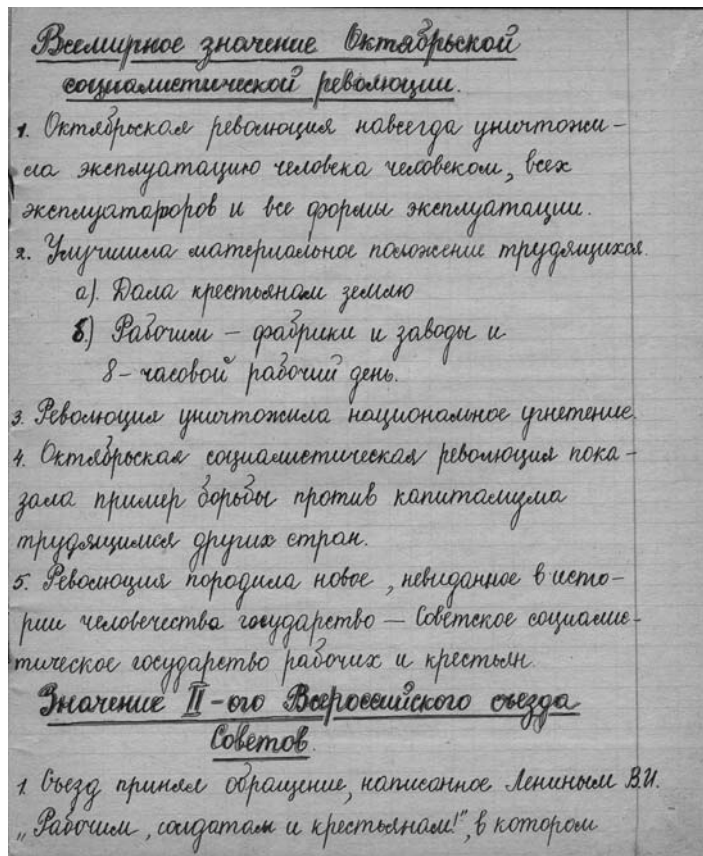 Всемирное значение Октябрьской
социалистической революции.
1. Октябрьская революция навсегда уничтожи-
ла эксплуатацию человека человеком, всех
эксплуататоров и все формы эксплуатации.
2. Улучшила материальное положение трудящихся.
а). Дала крестьянам землю
б.) Рабочим – фабрики и заводы и
8 – часовой рабочий день.
3. Революция уничтожила национальное угнетение.
4. Октябрьская социалистическая революция пока-
зала пример борьбы против капитализма
трудящимся других стран.
5. Революция породила новое, невиданное в исто-
рии человечества государство – Советское социалис-
тическое государство рабочих и крестьян.
Значение II-ого Всероссийского съезда
Советов.
1. Съезд принял обращение, написанное Лениным В.И.
„Рабочим, солдатам и крестьянам!", в котором